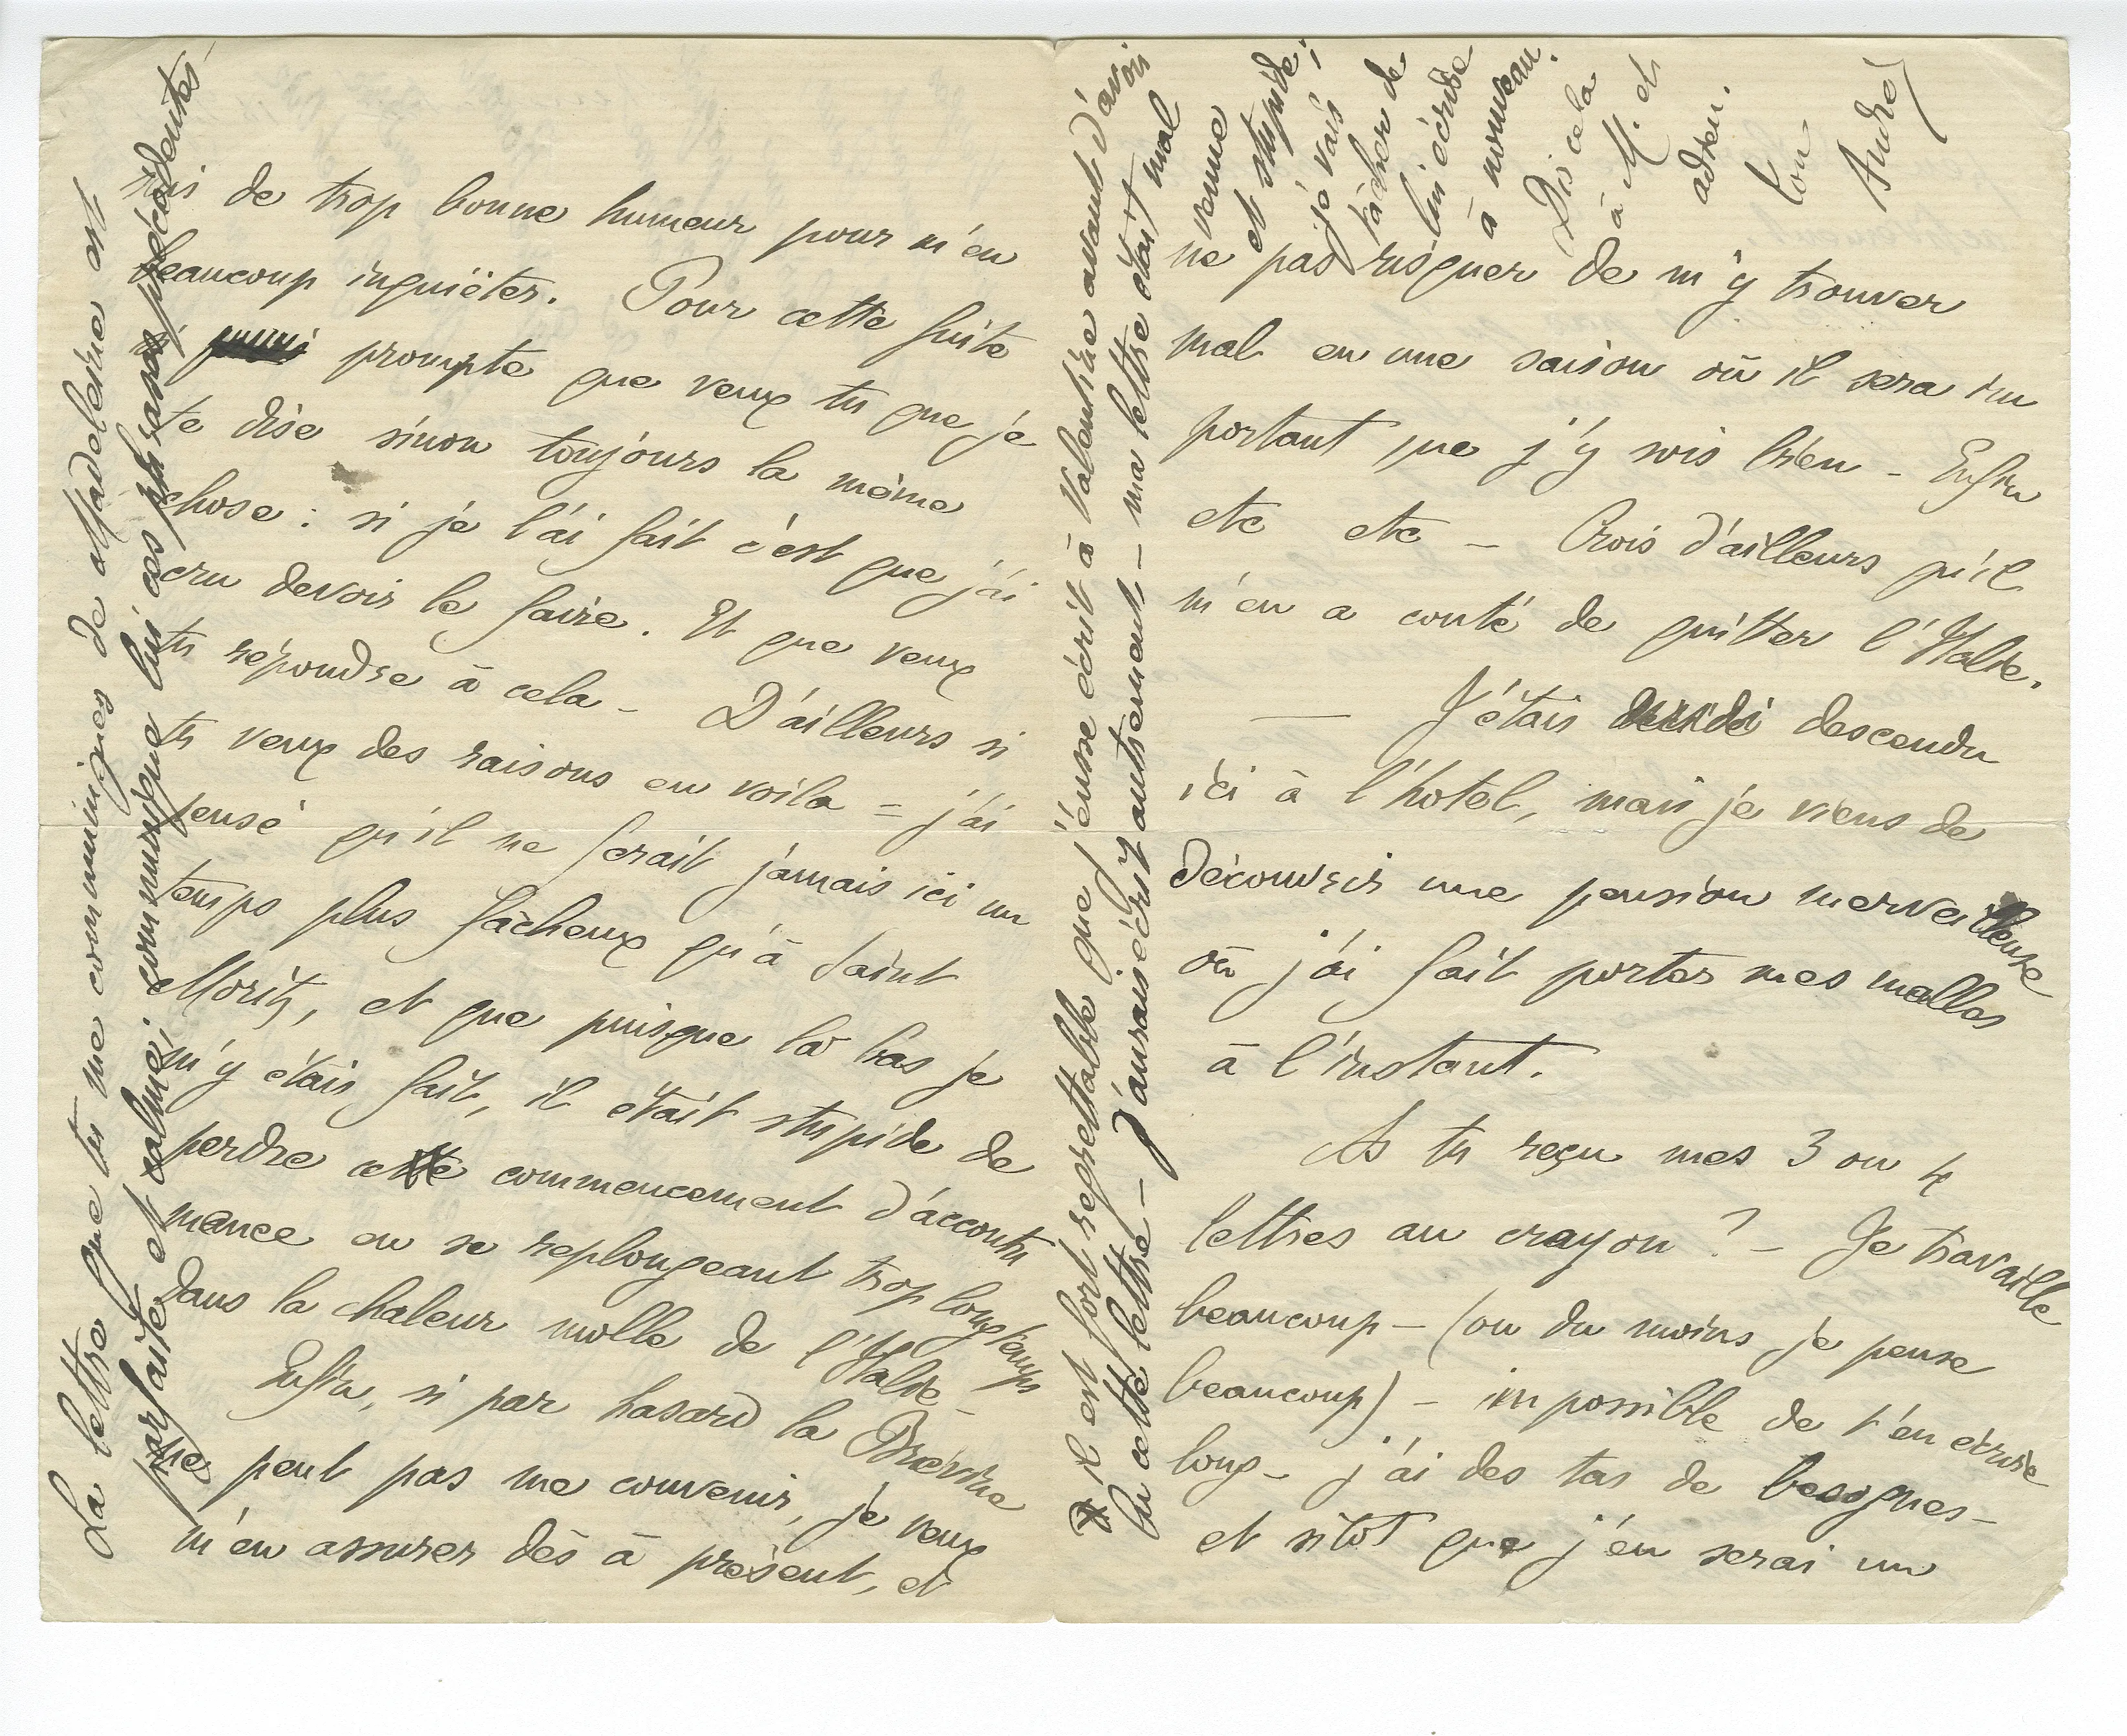 suis de trop bonne humeur pour m'en
beaucoup inquiéter. Pour cette fuite
si prompte que veux tu que je
te dise sinon toujours la même
chose : si je l'ai fait c'est que j'ai
cru devoir le faire. Et que veux
tu répondre à cela - D'ailleurs si
tu veux des raisons en voila = j'ai
pensé qu'il ne ferait jamais ici un
temps plus fâcheux qu'à Saint
Moritz, et que puisque là bas je
m'y étais fait, il était stupide de
perdre ce commencement d'accoutu
mance en se replongeant trop longtemps
dans la chaleur molle de l'Italie -
Enfin, si par hasard la Brévine
ne peut pas me convenir, je veux
m'en assurer dès à présent, et
La lettre que tu me communiques de Madeleine est
parfaite et calme; communique lui ces phrases précédentes -
ne pas risquer de m'y trouver
mal en une saison où il sera im
portant que j'y sois bien - Enfin
etc etc - Crois d'ailleurs qu'il
m'en a couté de quitter l'Italie.
— J'étais descendu
ici à l'hotel, mais je viens de
découvrir une pension merveilleuse
où j'ai fait porter mes malles
à l'instant.
As tu reçu mes 3 ou 4
lettres au crayon ? - Je travaille
beaucoup - (ou du moins je pense
beaucoup) - impossible de t'en écrire
long - j'ai des tas de besognes -
et sitôt que j'en serai un
il est fort regrettable que j'eusse écrit à Valentine avant d'avoir
lu cette lettre - J'aurais écrit autrement - ma lettre était mal
venue
et stupide;
je vais
tâcher de
lui écrire
à nouveau.
Dis cela
à M. et
adieu.
ton
André